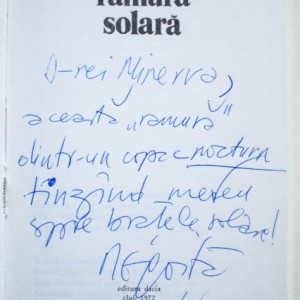 ramura
solară
D-rei Minerva,
această „ramură”
dintr-un copac nocturn
tînzînd mereu
spre bratele solare!
editura dacia
cluj 1972